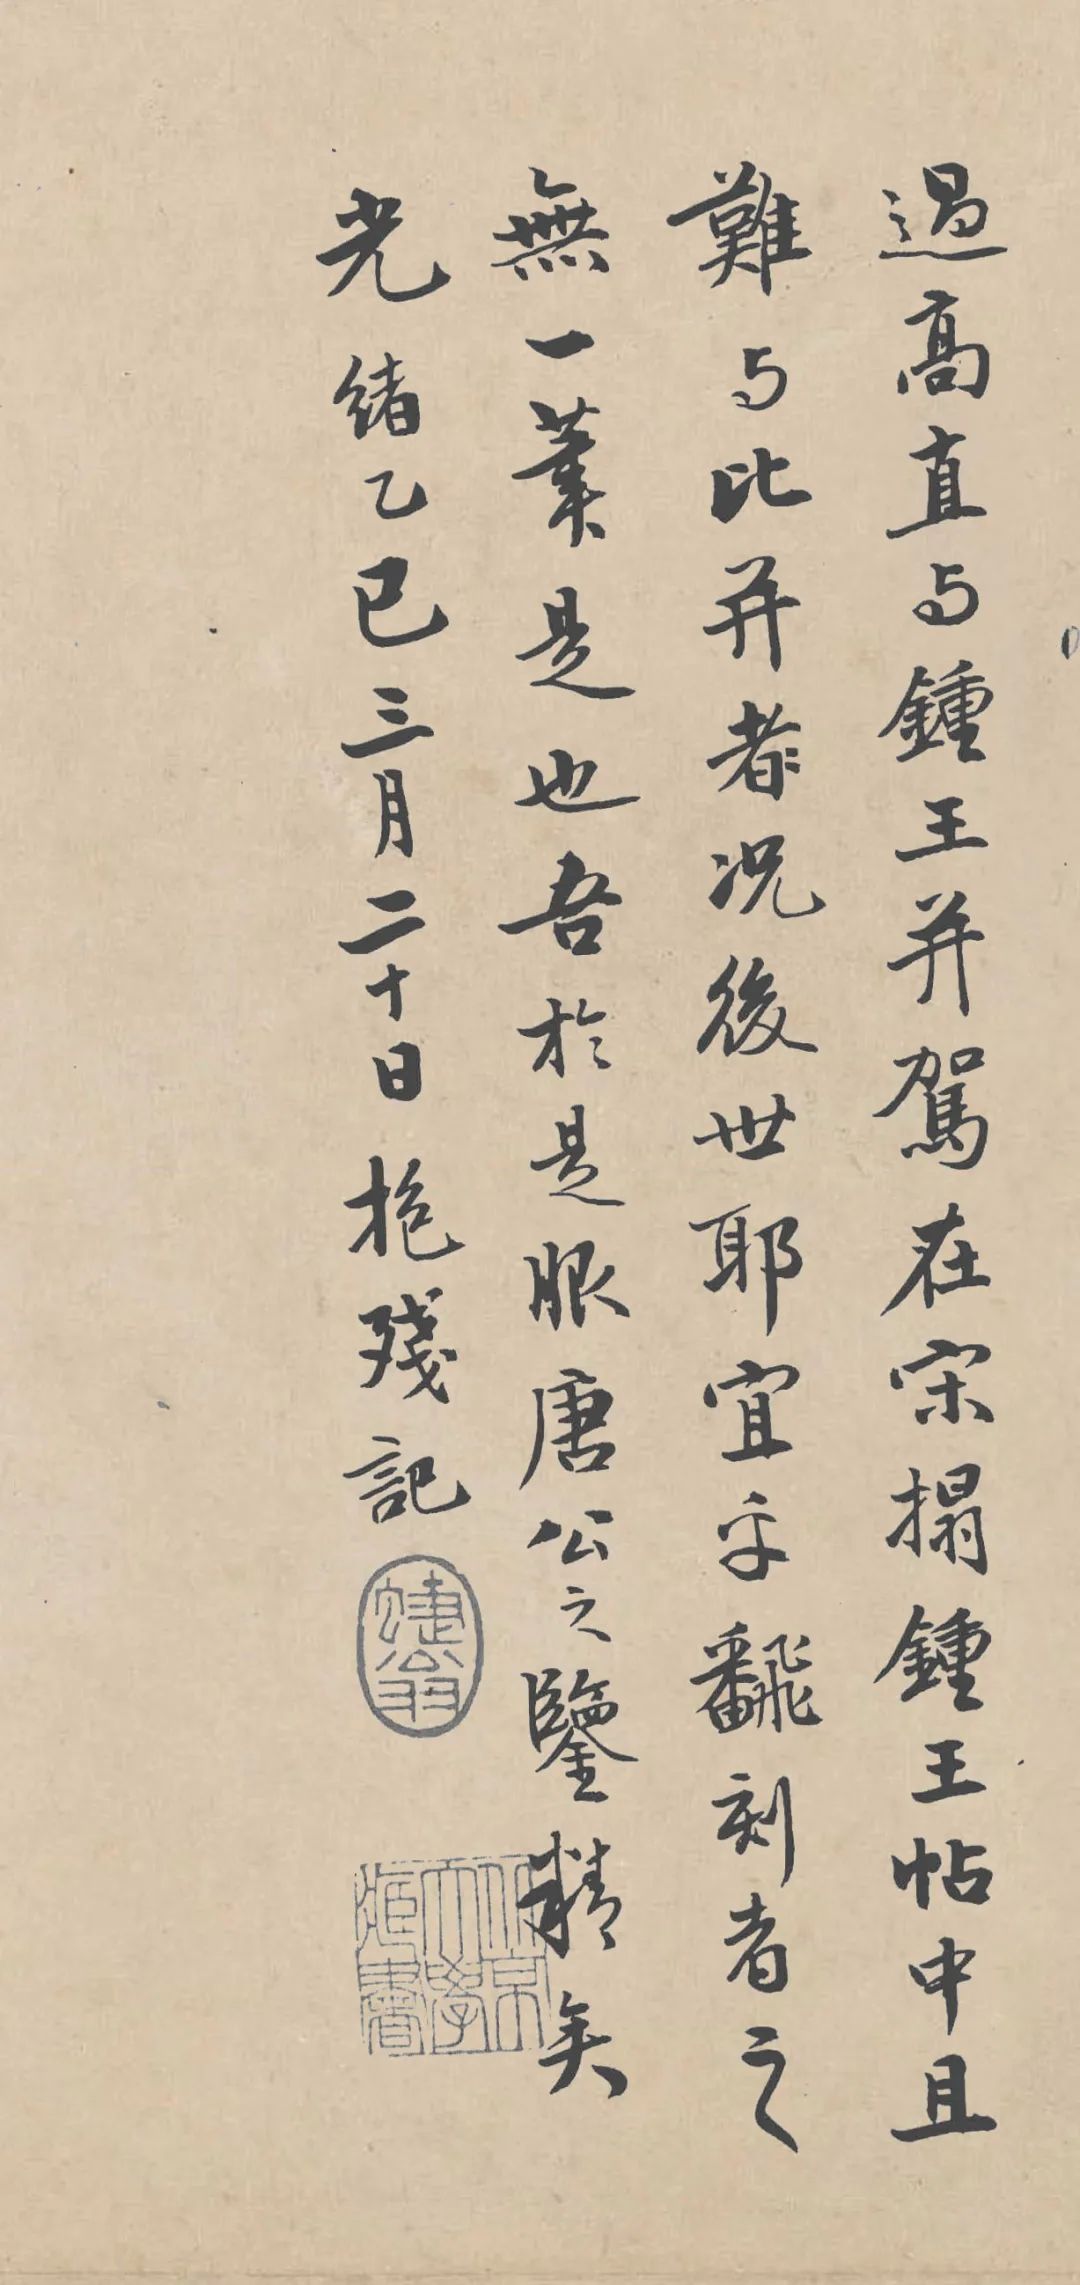 過高直与鍾王并駕在宋搨鍾王帖中且
難与比并者况後世耶宜乎飜刻者之
無一筆是也吾於是服唐公之鑒精矣
光緒乙巳三月二十日抱殘記
北京大學藏書